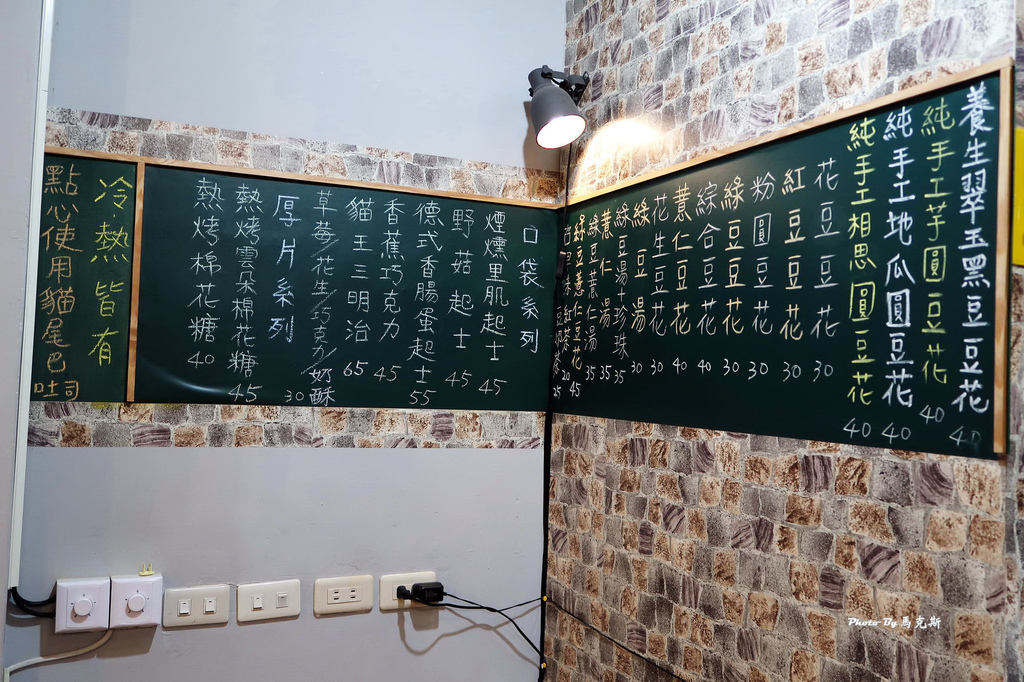 養生翠玉黑豆豆花 40
純手工芋圓豆花 40
純手工地瓜圓豆花 40
純手工相思圓豆花 40
花豆豆花 30
紅豆豆花 30
粉圓豆花 30
綠豆豆花 30
綜合豆花 40
薏仁豆花 40
花生豆花 30
綠豆湯 30
綠豆湯+珍珠 35
薏仁湯 35
綠豆薏仁湯 35
綠豆薏仁豆花 45
紅茶 20
25
口袋系列
煙燻里肌起士 45
野菇起士 45
德式香腸蛋起士 55
香蕉巧克力 45
貓王三明治 65
厚片系列
草莓/花生/巧克力/奶酥 30
熱烤雲朵棉花糖 45
熱烤棉花糖 40
冷熱皆有
點心使用貓尾巴吐司
Photo By 馬克斯